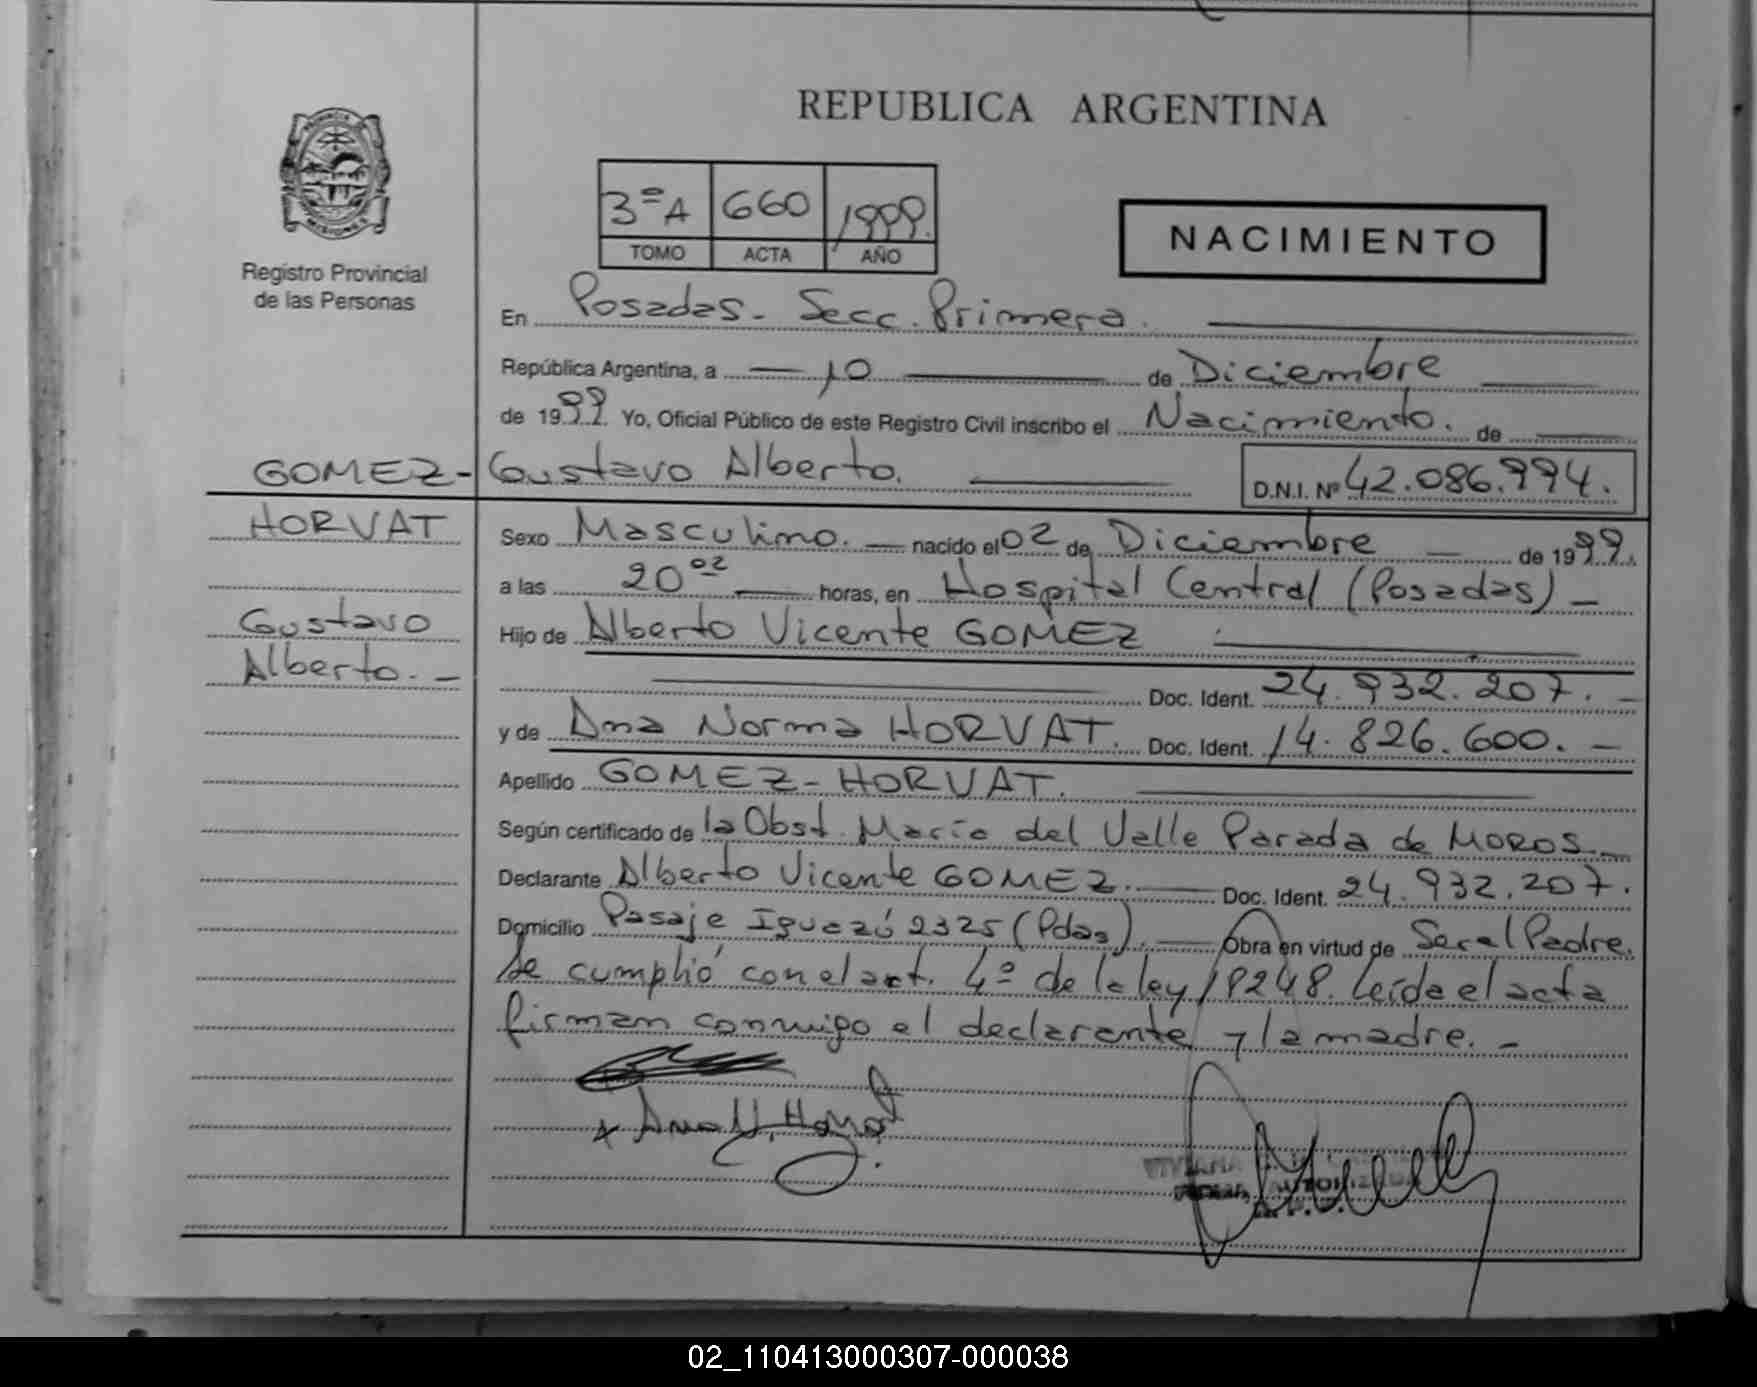 REPUBLICA ARGENTINA
3º A 660 1999.
TOMO ACTA AÑO
NACIMIENTO
Registro Provincial
de las Personas
En Posadas - Secc. Primera.
República Argentina, a 10 de Diciembre
de 1999. Yo, Oficial Público de este Registro Civil inscribo el Nacimiento. de
GOMEZ - Gustavo Alberto. D.N.I. Nº 42.086.994.
HORVAT
Gustavo
Alberto. -
Sexo Masculino. - nacido el 02 de Diciembre - de 1999.
a las 20 02 horas, en Hospital Central (Posadas) -
Hijo de Alberto Vicente GOMEZ
Doc. Ident. 24.932.207. -
y de Ana Norma HORVAT. Doc. Ident. 14.826.600. -
Apellido GOMEZ - HORVAT.
Según certificado de la Obst. María del Valle Parada de MOROS. -
Declarante Alberto Vicente GOMEZ. Doc. Ident. 24.932.207.
Domicilio Pasaje Iguazú 2325 (Pdas). Obra en virtud de Ser el Padre.
Se cumplió con el art. 4º de la ley 18248. Leída el acta
firman conmigo el declarante y la madre. -
02_110413000307-000038